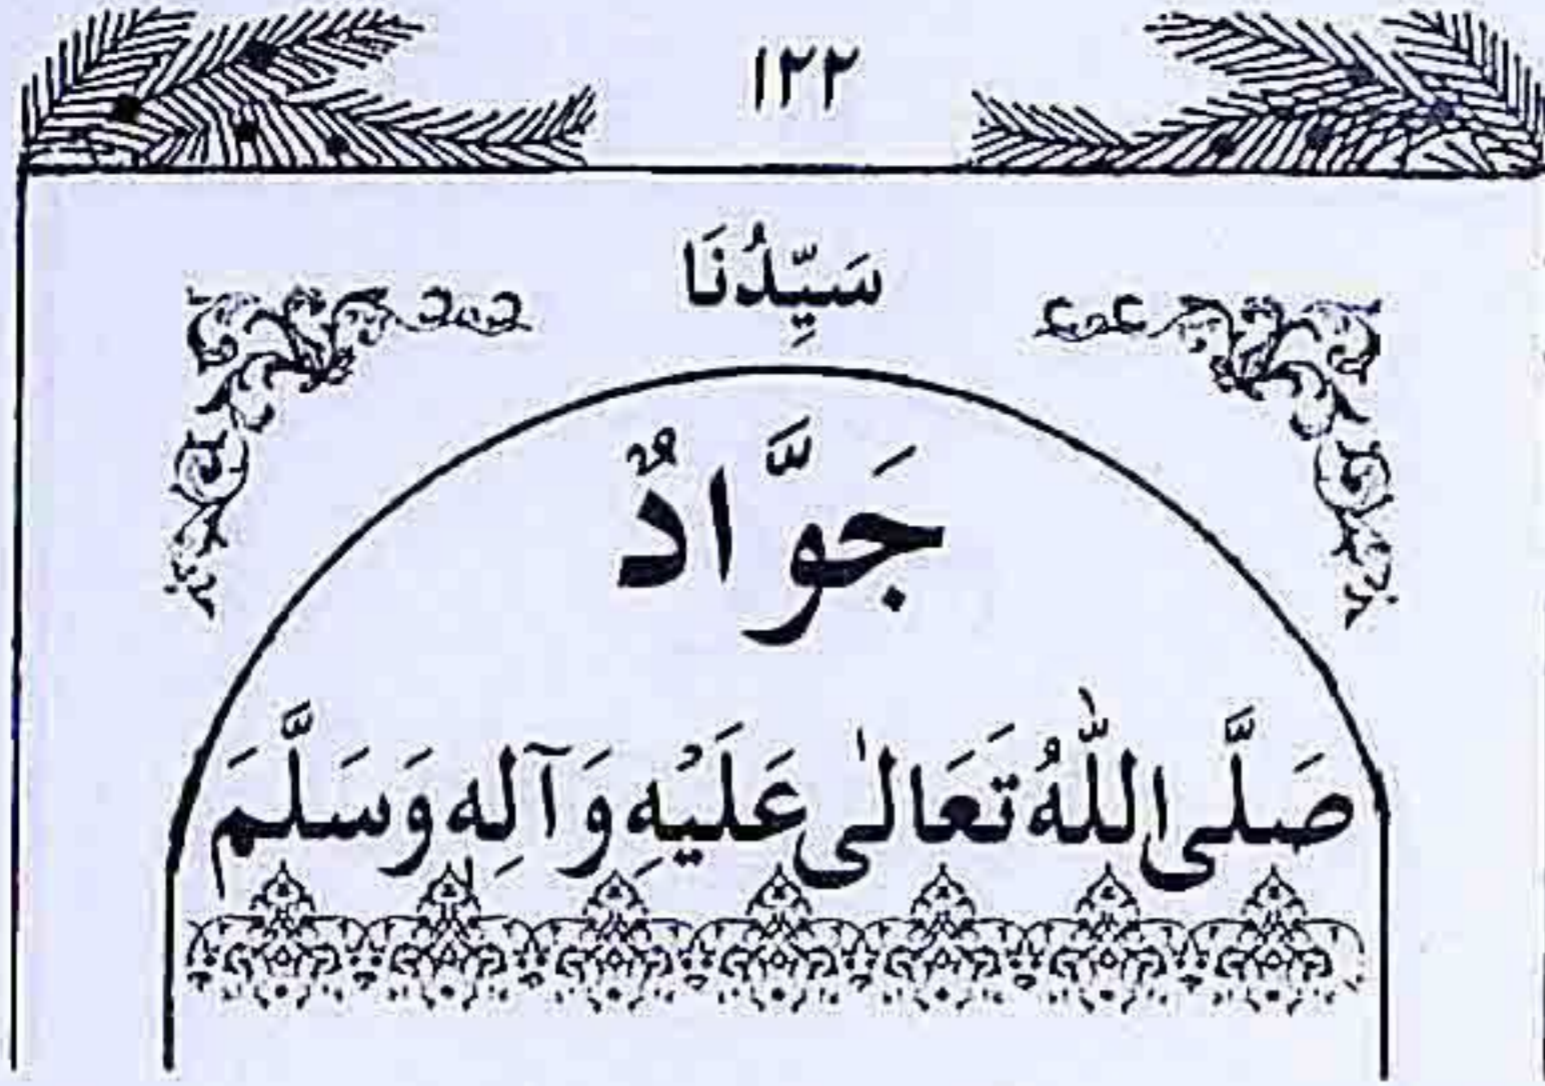 ۱۲۲
سَيِّدُنَا
جَوَّادٌ
صَلَّى اللّٰهُ تَعَالٰى عَلَيْهِ وَآلِهٖ وَسَلَّمَ